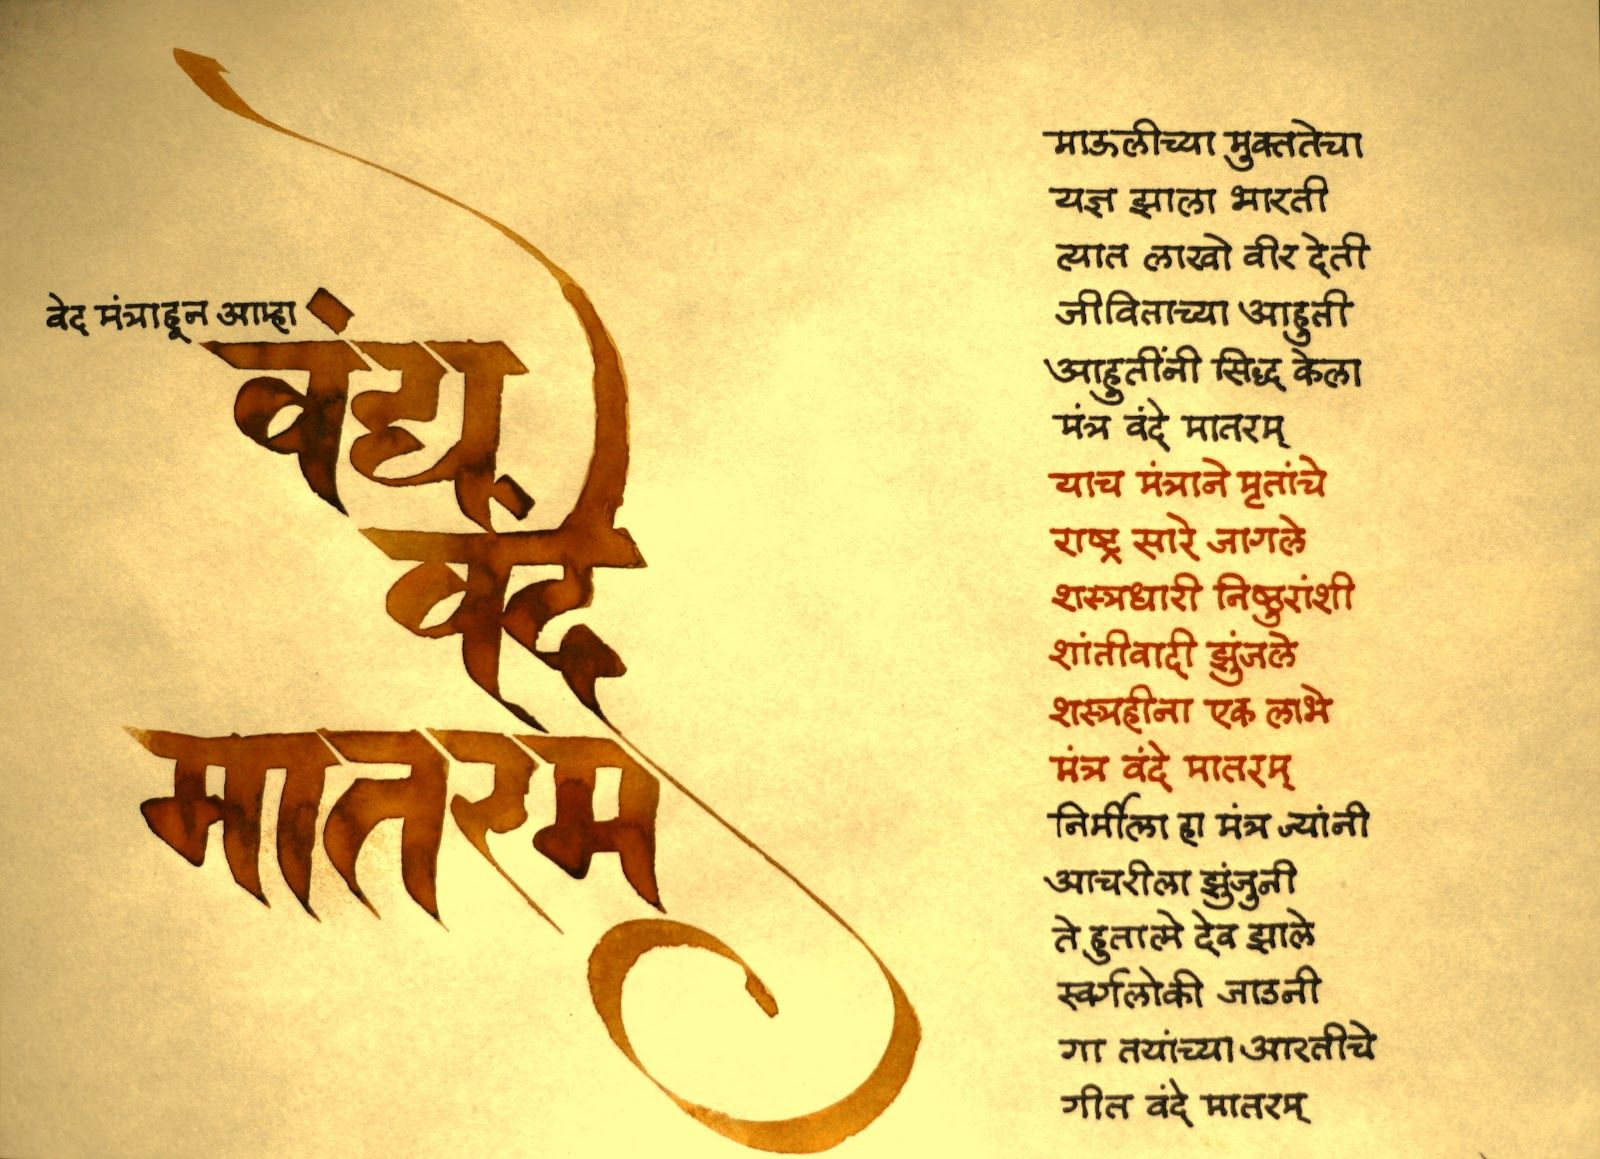 वेद मंत्राहून आम्हा
वंद्य
वंदे
मातरम
माऊलीच्या मुक्ततेचा
यज्ञ झाला भारती
त्यात लाखो वीर देती
जीविताच्या आहुती
आहुतींनी सिद्ध केला
मंत्र वंदे मातरम्
याच मंत्राने मृतांचे
राष्ट्र सारे जागले
शस्त्रधारी निष्ठुरांशी
शांतीवादी झुंजले
शस्त्रहीना एक लाभे
मंत्र वंदे मातरम्
निर्मीला हा मंत्र ज्यांनी
आचरीला झुंजुनी
ते हुतात्मे देव झाले
स्वर्गलोकी जाउनी
गा तयांच्या आरतीचे
गीत वंदे मातरम्